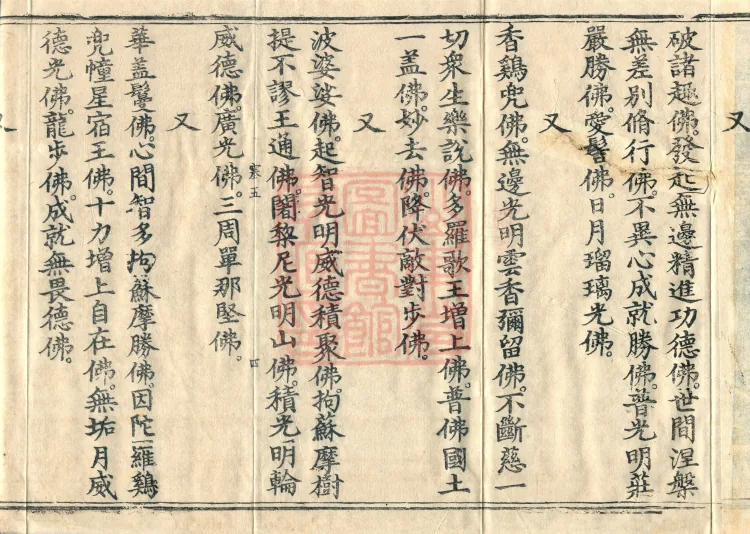 又
破諸趣佛。發起無邊精進功德佛。世間涅槃
無差别脩行佛。不異心成就勝佛。普光明莊
嚴勝佛。愛髻佛。日月瑠璃光佛。
又
香鷄兜佛。無邊光明雲香彌留佛。不斷慈一
切衆生樂說佛。多羅歌王增上佛。普佛國土
一盖佛。妙去佛。降伏敵對步佛。
又
波婆娑佛。起智光明威德積聚佛。拘蘇摩樹
提不謬王通佛。闍黎尼光明山佛。積光明輪
寒五 四
威德佛。廣光佛。三周單那堅佛。
又
華盖鬘佛。心間智多拘蘇摩勝佛。因陀羅鷄
兜幢星宿王佛。十力增上自在佛。無垢月威
德光佛。龍步佛。成就無畏德佛。
又